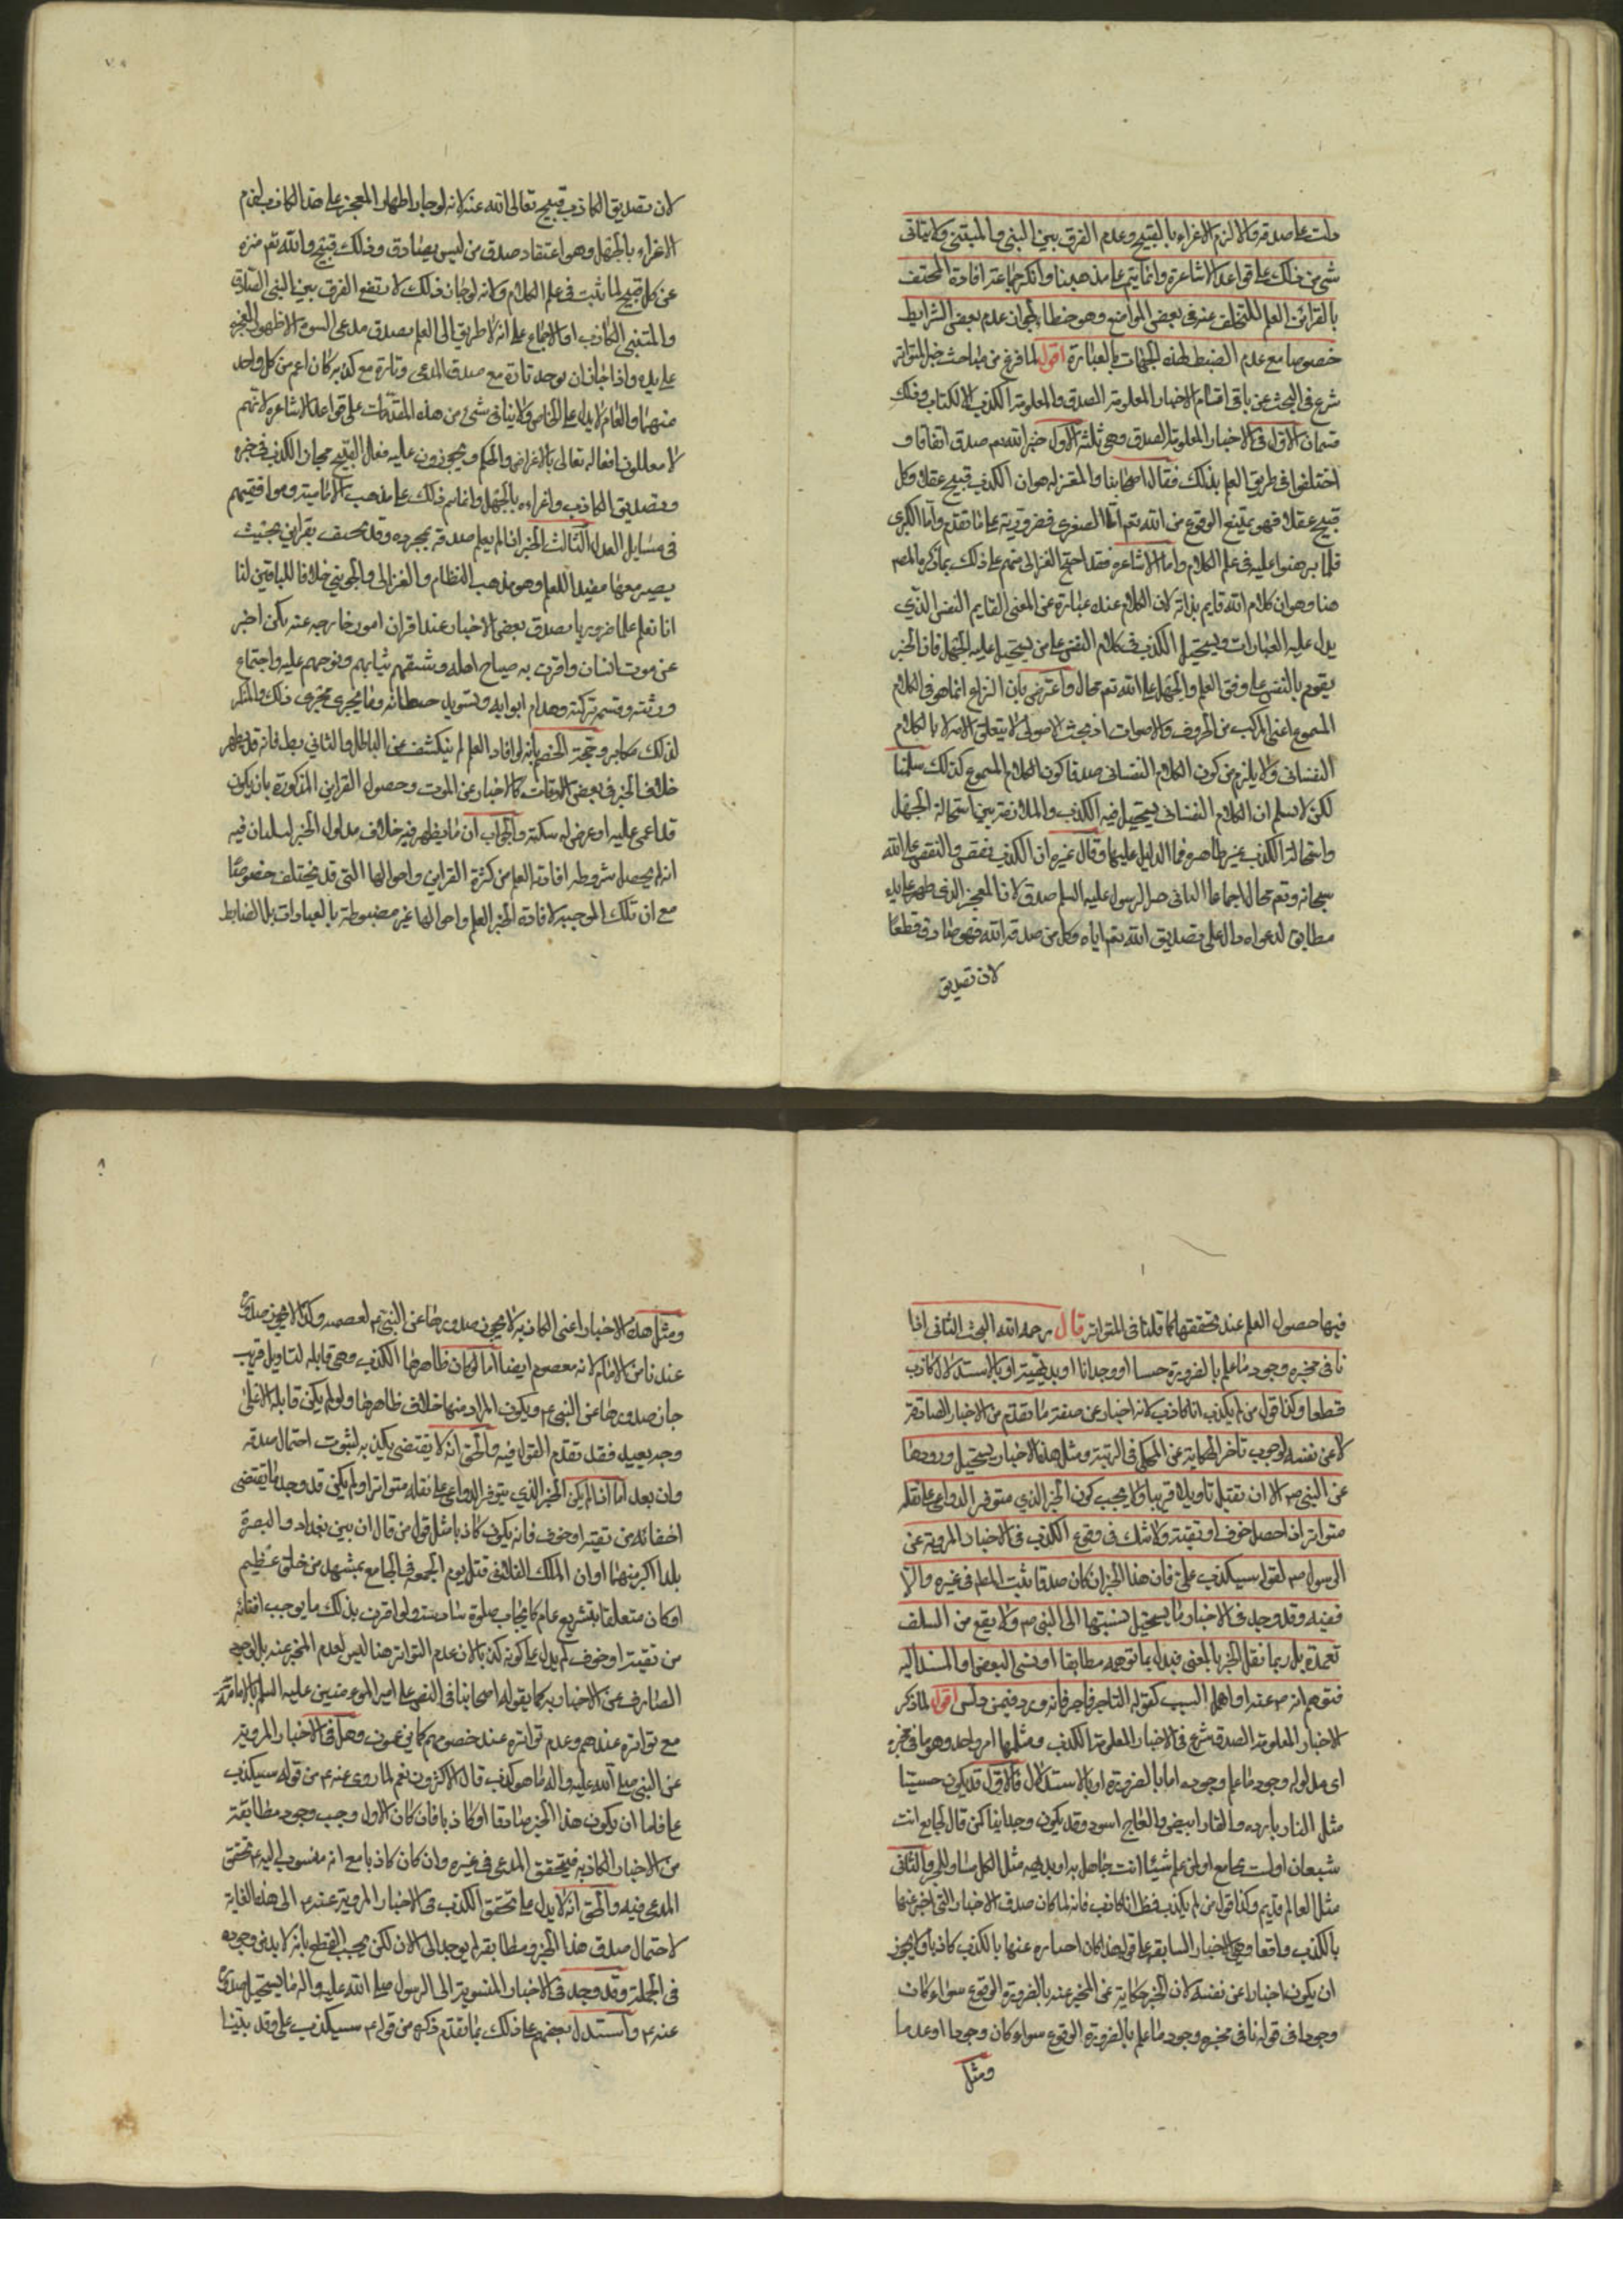 دلت على صدقه والا لزم الاغراء بالقبيح وعدم الفرق بين النبي والمتنبي ولا يتاتى
شئ من ذلك على قواعد الاشاعرة وانما يتم على مذهبنا وانكر جماعة افادة المحتف
بالقرائن العلم للتخلف عنه في بعض المواضع وهو خطاء لجواز عدم بعض الشرايط
خصوصا مع عدم الضبط لهذه الجهات بالعبارة اقول لما فرغ من مباحث خبر المتواتر
شرع في البحث عن باقي اقسام الاخبار المعلومة الصدق والمعلومة الكذب وذلك
قسمان الاول في الاخبار المعلومة الصدق وهي ثلثة الاول خبر الله تعم صدق اتفاقا و
اختلفوا في طريق العلم بذلك فقال اصحابنا والمعتزله هو ان الكذب قبيح عقلا وكل
قبيح عقلا فهو يمتنع الوقوع من الله تعم اما الصغرى فضرورية على ما تقدم واما الكبرى
فلما برهنوا عليه في علم الكلام واما الاشاعره فقد احتج الغزالى منهم على ذلك بما ذكره المصم
هنا وهو ان كلام الله قايم بذاته لان الكلام عنده عبارة عن المعنى القايم النفس الذي
يدل عليه العبارات ويستحيل الكذب في كلام النفس على من يستحيل عليه الجهل فان الخبر
يقوم بالنفس على وفق العلم والجهل على الله تعم محال واعترض بان النزاع انما هو في الكلام
المسموع اعني المركب من الحروف والاصوات اذ بحث الاصولى لا يتعلق الا بالكلام
النفسانى ولا يلزم من كون الكلام النفسانى صدقا كون الكلام المسموع كذلك سلمنا
لكن لا نسلم ان الكلام النفسانى يستحيل فيه الكذب والملازمة بين استحالة الجهل
واستحالة الكذب غير ظاهره فما الدليل عليها وقال غيره ان الكذب نقص والنقص على الله
سبحانه وتعم محال اجماعا الثانى خبر الرسول عليه السلم صدق لان المعجز الذي ظهر على يده
مطابق لدعواه دال على تصديق الله تعم اياه وكل من صدقه الله فهو صادق قطعا
لان تصديق
لان تصديق الكاذب قبيح تعالى الله عنه لانه لو جاز اظهار المعجز على يد الكاذب لزم
الاغراء بالجهل وهو اعتقاد صدق من ليس بصادق وذلك قبيح والله تعم منزه
عن كل قبيح لما ثبت في علم الكلام ولانه لو جاز ذلك لارتفع الفرق بين النبي الصادق
والمتنبي الكاذب اذ الاجماع على انه لا طريق الى العلم بصدق مدعى النبوة الا ظهور المعجز
على يده واذا جاز ان يوجد تارة مع صدق المدعى وتارة مع كذبه كان اعم من كل واحد
منهما والعام لا يدل على الخاص ولا يتاتى شئ من هذه المقدمات على قواعد الاشاعره لانهم
لا يعللون افعاله تعالى بالاغراض والحكم ويجوزون عليه فعل القبيح فجاز الكذب في خبره
وتصديق الكاذب واغراءه بالجهل وانما يتم ذلك على مذهب الامامية وموافقيهم
في مسايل العدل الثالث الخبر اذا لم يعلم صدقه بمجرده وقد يحتف بقراين بحيث
يصير معها مفيدا للعلم وهو مذهب النظام والغزالى والجوينى خلافا للباقين لنا
انا نعلم علما ضروريا بصدق بعض الاخبار عند اقتران امور خارجه عنه كمن اخبر
عن موت انسان واقترن به صياح اهله وشقهم ثيابهم ونوحهم عليه واجتماع
ورثته وقسمه تركته وهدام ابوابه وتسويد حيطانه وما يجرى مجرى ذلك والمنكر
لذلك مكابر وحجة الخصم بانه لو افاد العلم لم ينكشف عن الباطل والثاني بط فانه قد يظهر
خلاف الخبر في بعض الاوقات كالاخبار عن الموت وحصول القراين المذكورة بان يكون
قد اغمى عليه او عرض له سكتة والجواب ان ما يظهر فيه خلاف مدلول الخبر لبيان فيه
انه لم يحصل شروطه افادته العلم من كثرة القراين واحوالها التي قد يختلف خصوصا
مع ان تلك الموجبه لافادة الخبر العلم واحوالها غير مضبوطة بالعبارات بل الضابط
فيها حصول العلم عند تحققها كما قلنا في المتواتر قال رحمه الله البحث الثاني اذا
نافى مخبره وجود ما علم بالضرورة حسا او وجدانا او بديهية او بالاستدلال كاذب
قطعا وكذا قول من لم يكذب انا كاذب لانه اخبار عن صفته ما تقدم من الاخبار الصادقة
لا عن نفسه لوجوب تاخر الحكاية عن المحكي في الرتبة ومثل هذه الاخبار يستحيل ورودها
عن النبي صم الا ان تقبل تاويلا قريبا ولا يجب كون الخبر الذي متوفر الدواعي على نقله
متواترا اذا حصل خوف او تقية ولا شك في وقوع الكذب في الاخبار المروية عن
الرسول صم لقوله سيكذب على فان هذا الخبر ان كان صدقا ثبت المدعا في غيره والا
ففيه وقد وجد في الاخبار ما يستحيل نسبتها الى النبي صم ولا يقع من السلف
تعمدة بل ربما نقل الخبر بالمعنى فبدل بما توهمه مطابقا او نسى البعض او المسند اليه
فتوهم انه صم عنه او اهمل السبب كقوله التاجر فاجر فانه ورد فيمن دلس اقول لما ذكر
الاخبار المعلومة الصدق شرع في الاخبار المعلومة الكذب ومثلها امر واحد وهو ما في مخبره
اى مدلوله وجود ما علم وجوده اما بالضرورة او بالاستدلال فالاول قد يكون حسيتا
مثل النار بارده والقار ابيض والعاج اسود وقد يكون وجدانيا كمن قال لجايع انت
شبعان او لست بجامع او لمن علم شيئا انت جاهل به او بديهه مثل الكل مساو للجزء والثانى
مثل العالم قديم وكذا قول من لم يكذب قط انا كاذب فانه لما كان صدق الاخبار التي اخبر عنها
بالكذب واقعا وهي الاخبار السابقه على قوله هذا كان اخباره عنها بالكذب كاذبا ولا يجوز
ان يكون اخبارا عن نفسه لان الخبر حكاية عن المخبر عنه بالضرورة الوقوع سواء كان
وجودا في قوله نافى مخبره وجود ما علم بالضرورة الوقوع سواء كان وجودا او عدما
ومثل
ومثل هذه الاخبار اعني الكاذبه لا يجوز صدورها عن النبي صم لعصمته وكذا لا يجوز صدورها
عندنا من الامام لانه معصوم ايضا اما لو كان ظاهرها الكذب وهى قابله لتاويل قريب
جاز صدورها عن النبي صم ويكون المراد منها خلاف ظاهرها ولو لم يكن قابله الا على
وجه بعيد فقد تقدم القول فيه والحق انه لا يقتضى يكذبه لثبوت احتمال صدقه
وان بعد اما اذا لم يكن الخبر الذي يتوفر الدواعى على نقله متواترا ولم يكن قد وجد ما يقتضى
اخفائه من تقية او خوف فانه يكون كاذبا مثل قول من قال ان بين بغداد والبصرة
بلدا اكبر منهما او ان الملك الفلانى قتل يوم الجمعه في الجامع بمشهد من خلق عظيم
او كان متعلقا بتشريع عام كايجاب صلوة سادسة ولو اقترن بذلك ما يوجب اخفائه
من تقية او خوف لم يدل على كونه كذبا لان عدم التواتر هنا ليس لعدم المخبر عنه بل لوجود
الصارف عن الاخبار به كما يقوله اصحابنا في النص على امير المومنين عليه السلم بالامامة
مع تواتره عندهم وعدم تواتره عند خصومهم كما يزعمون وهل في الاخبار المروية
عن النبي صلى الله عليه واله ما هو كذب قال الاكثرون نعم لما روى عنه عم من قوله سيكذب
على فاما ان يكون هذا الخبر صادقا او كاذبا فان كان الاول وجب وجود مطابقة
من الاخبار الكاذبه فيتحقق المدعى في غيره وان كان كاذبا مع انه منسوب اليه عم تحقق
المدعى فيه والحق انه لا يدل على تحقق الكذب في الاخبار المروية عنه عم الى هذه الغاية
لاحتمال صدق هذا الخبر ومطابقه لم يوجد الى الان لكن يجب القطع بانه لا بد من وجوده
في الجملة وقد وجد في الاخبار المنسوبة الى الرسول صلى الله عليه واله ما يستحيل صدوره
عنه عم واستدل بعضهم على ذلك بما تقدم ذكره من قوله عم سيكذب على وقد بينا